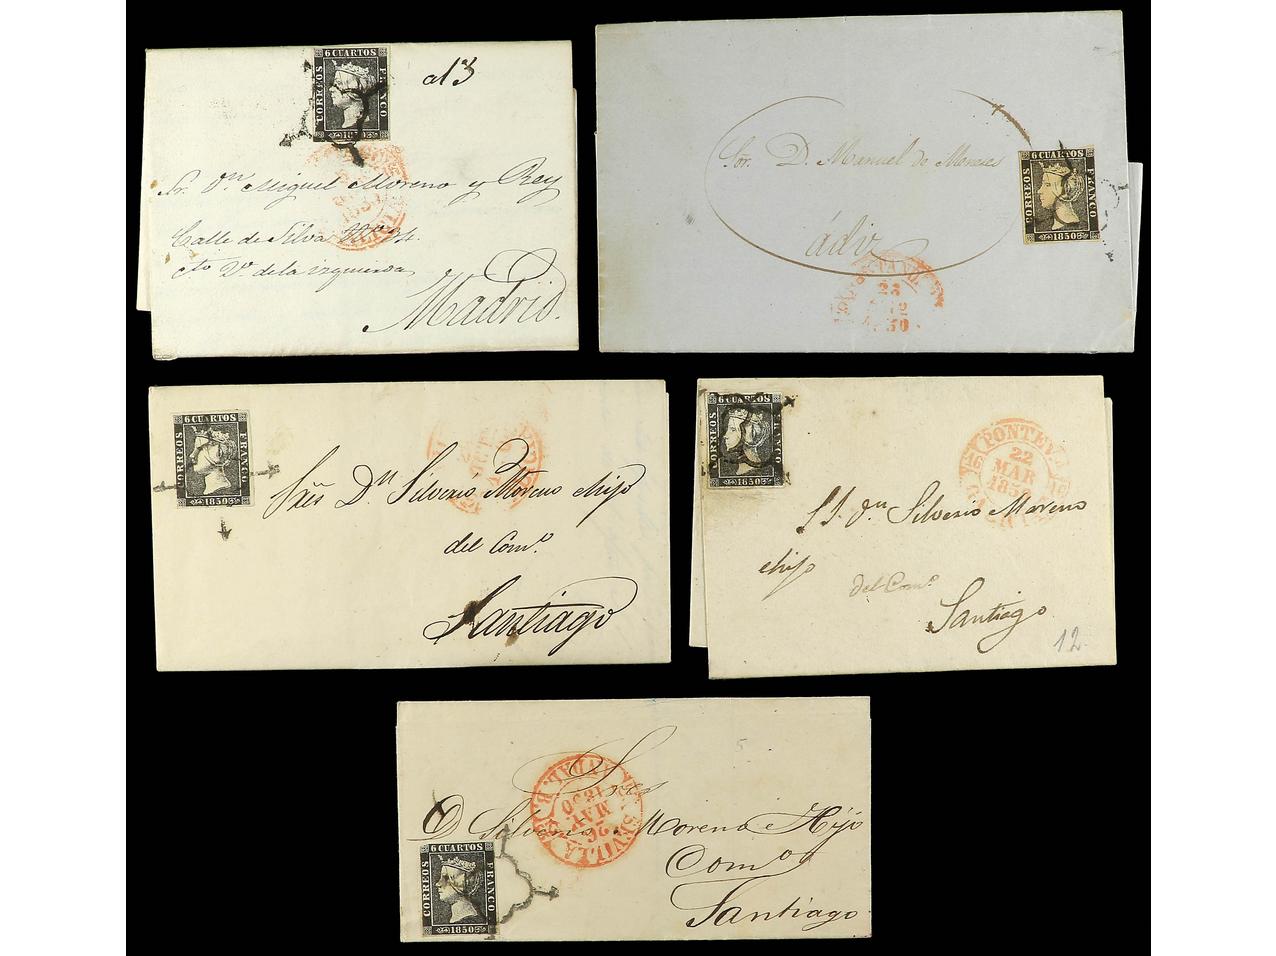 6 CUARTOS
CORREOS
FRANCO
1850
al 3
Sr. Dn. Miguel Moreno y Rey
Calle de Silva No. 34.
cto 2o de la izquierda
Madrid.
6 CUARTOS
CORREOS
FRANCO
1850
Sor. D. Manuel de Meneses
23
50
6 CUARTOS
CORREOS
FRANCO
1850
Sres Dn Silverio Moreno e hijo
del Como.
Santiago
6 CUARTOS
CORREOS
FRANCO
1850
PONTEV
22
MAR
185
Dn Silverio Moreno
e hijo
del Como.
Santiago
12.
5
Sres
D. Silverio Moreno e Hijo
Como
Santiago
SEVILLA
26
MAY
1850
6 CUARTOS
CORREOS
FRANCO
1850